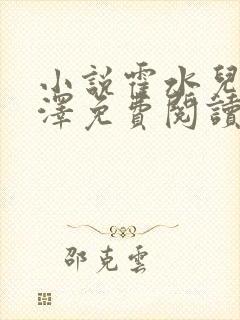 小說霍水兒
澤免費閱讀
邵克雲